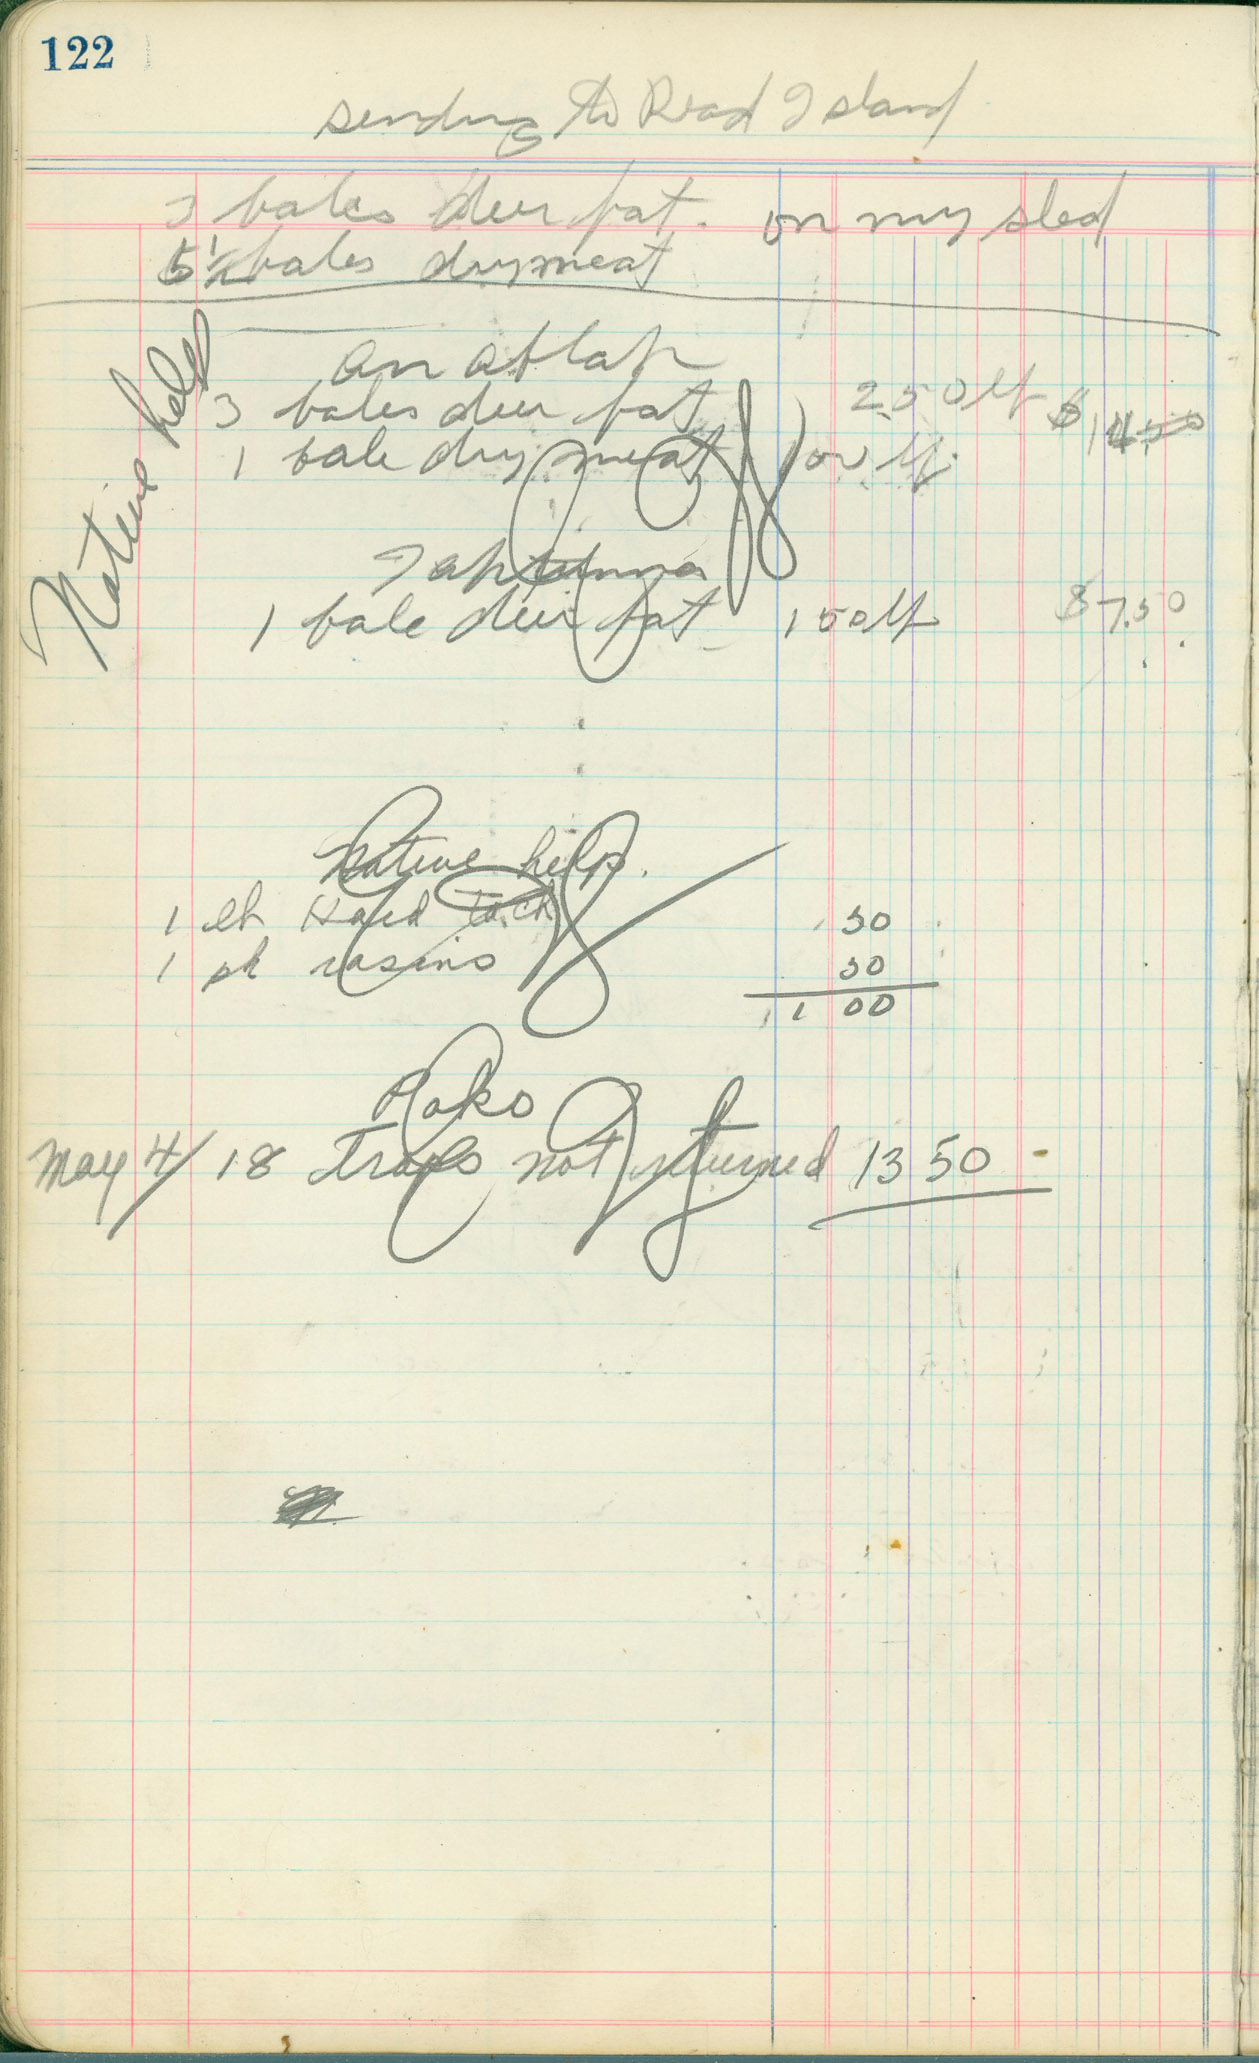 122
sending to Read Island
3 bales deer fat. on my sled
5½ bales drymeat
Native help
Anablak
3 bales deer fat 250 lb $
1 bale dry meat 100 lb.
1 bale deer fat 150 lb $7.50
Native help.
1 lb Hard Tack 50
1 pk rasins 50
1 00
Kako
May 4/18 Traps not returned 13 50